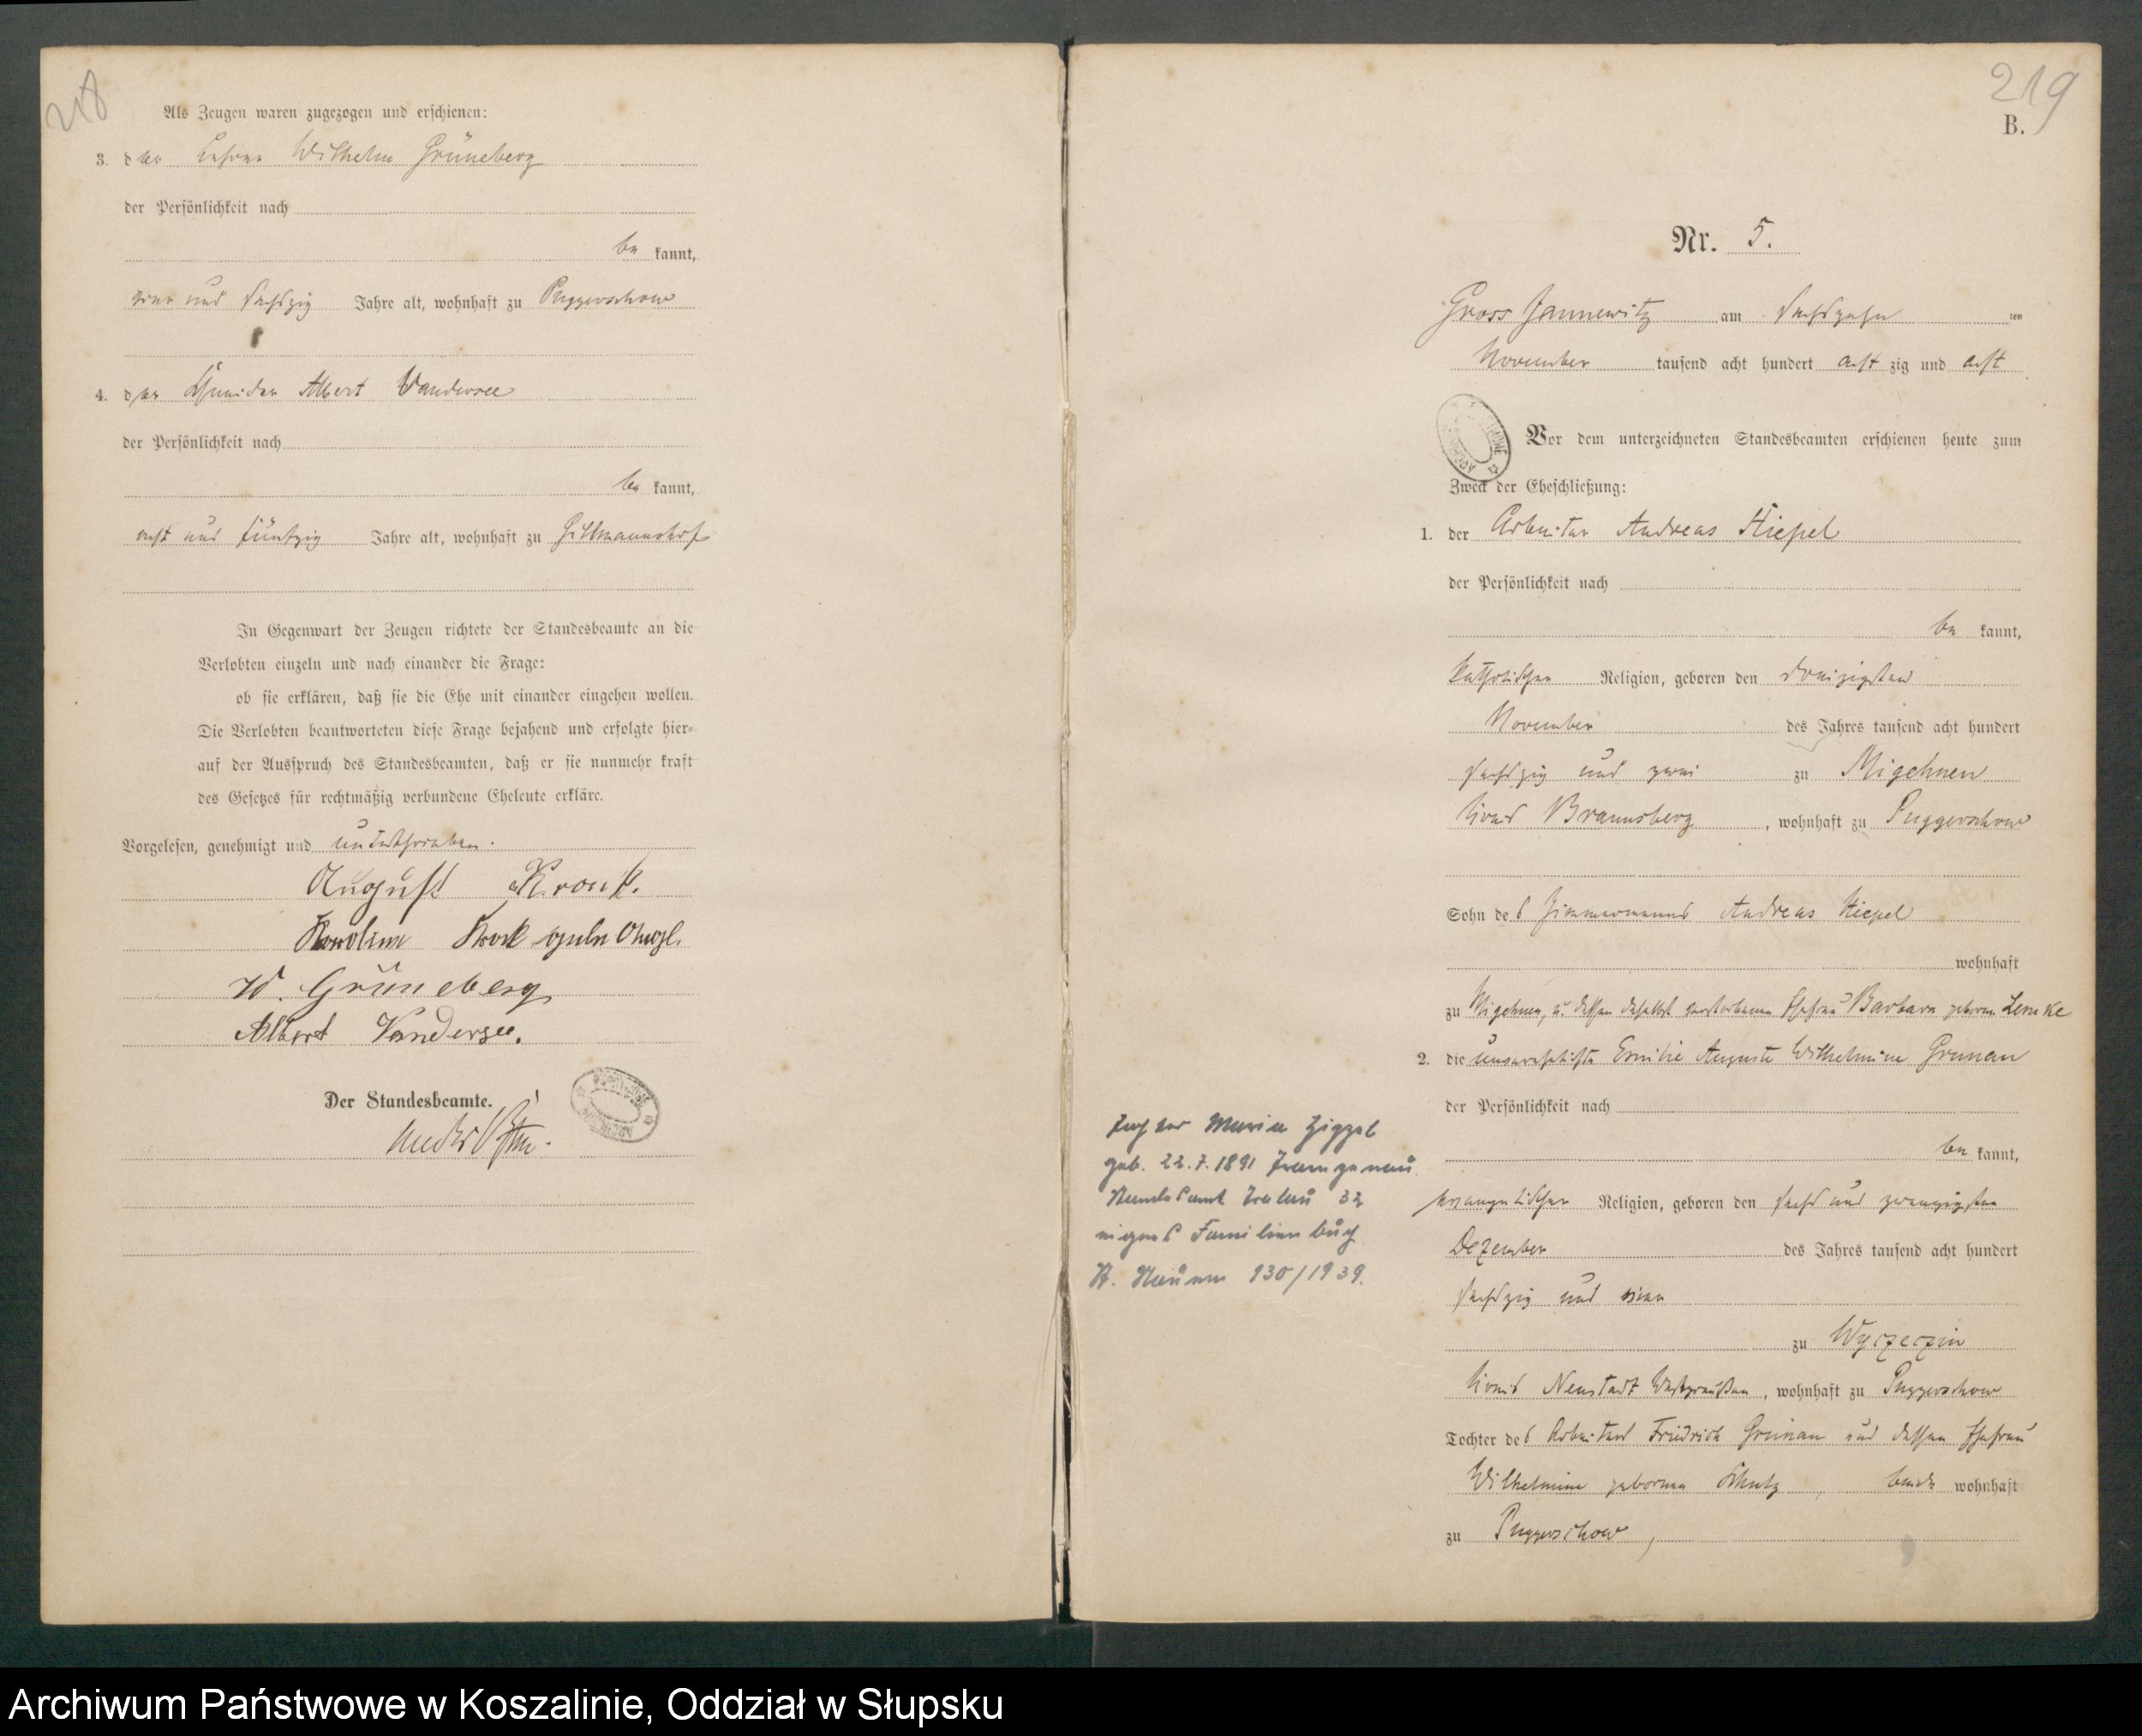 218
Als Zeugen waren zugezogen und erschienen:
3. der Lehrer Wilhelm Grüneberg
der Persönlichkeit nach
be kannt,
vier und sechszig Jahre alt, wohnhaft zu Puggerschow
4. der Schneider Albert Vandersee
der Persönlichkeit nach
be kannt,
acht und fünfzig Jahre alt, wohnhaft zu Hillmannshof
In Gegenwart der Zeugen richtete der Standesbeamte an die
Verlobten einzeln und nach einander die Frage:
ob sie erklären, daß sie die Ehe mit einander eingehen wollen.
Die Verlobten beantworteten diese Frage bejahend und erfolgte hier-
auf der Ausspruch des Standesbeamten, daß er sie nunmehr kraft
des Gesetzes für rechtmäßig verbundene Eheleute erkläre.
Vorgelesen, genehmigt und unterschrieben.
August
W. Grüneberg
Albert Vandersee.
Der Standesbeamte.
219
B.
Nr. 5.
Gross Jannewitz am sechszehn ten
November tausend acht hundert acht zig und acht
Vor dem unterzeichneten Standesbeamten erschienen heute zum
Zweck der Eheschließung:
1. der Arbeiter Andreas Hiepel
der Persönlichkeit nach
be kannt,
katholischer Religion, geboren den dreizigsten
November des Jahres tausend acht hundert
sechszig und zwei zu Migehnen
Kreis Braunsberg, wohnhaft zu Puggerschow
Sohn des Zimmermanns Andreas Hiepel
wohnhaft
zu Migehnen, u. dessen daselbst verstorbenen Ehefrau Barbara geboren Lemke
2. die unverehelichte Emilie Auguste Wilhelmine Grunau
der Persönlichkeit nach
be kannt,
evangelischer Religion, geboren den sechs und zwanzigsten
Dezember des Jahres tausend acht hundert
sechszig und vier
zu Wyczeczin
Kreis Neustadt Westpreußen, wohnhaft zu Puggerschow
Tochter des Arbeiters Friedrich Grunau und dessen Ehefrau
Wilhelmine geborene Schulz, beide wohnhaft
zu Puggerschow,
Tochter Maria
geb. 22.7.1891
Standesamt
Familienbuch
130/1939.
Archiwum Państwowe w Koszalinie, Oddział w Słupsku